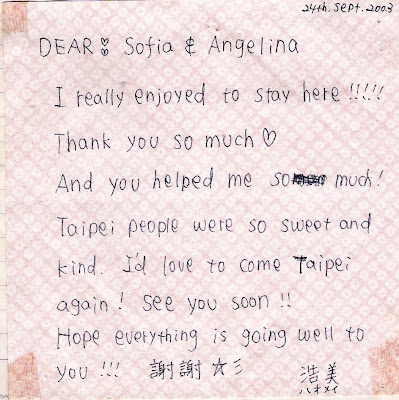 24th. Sept. 2003
DEAR Sofia & Angelina
I really enjoyed to stay here !!!!!
Thank you so much ♡
And you helped me so much!
Taipei people were so sweet and
kind. I'd love to come Taipei
again! See you soon !!
Hope everything is going well to
you !!! 謝謝 ☆彡
浩美
ハオメイ